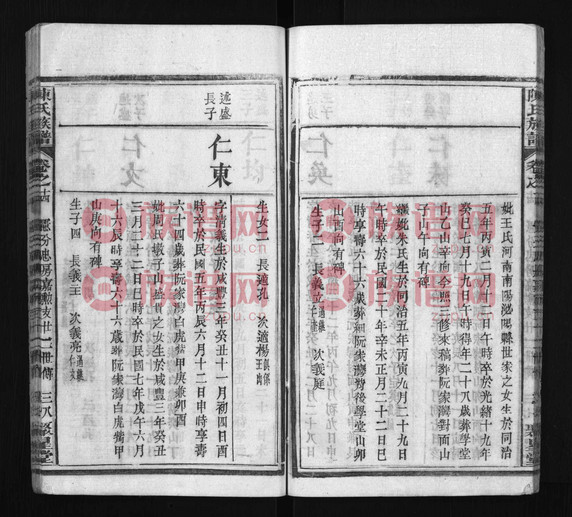 陳氏族譜
妣王氏河南南陽泌陽縣世家之女生於同治
五年丙寅二月十二日午時卒於光緒十九年
癸巳七月十九日午時得年二十八歲葬學堂
山乙山辛向今照三修來稿葬阮家灣對面山
子山午向有碑
繼妣朱氏生於同治五年丙寅九月二十九日
午時卒於民國二十年辛未正月二十二日巳
時享壽六十六歲葬細阮家灣後學堂山卯
山酉向有碑
生子二 長義 次義庭
陳氏族譜 卷之十四
廿二世傳 三八 聚星堂
述盛
長子
仁東
生女二 長適孔 次適楊
字清義生於咸豐三年癸丑十一月初四日酉
時卒於民國五年丙辰六月十二日申時享壽
六十四歲葬阮家灣白虎嘴甲庚兼卯酉
妣周氏 之女生於咸豐三年癸丑
三月三十日卯時卒於民國七年戊午六月
十六辰時享壽六十六歲葬阮家灣白虎嘴甲
山庚向有碑
生子四 長義玉 次義亮
族譜網